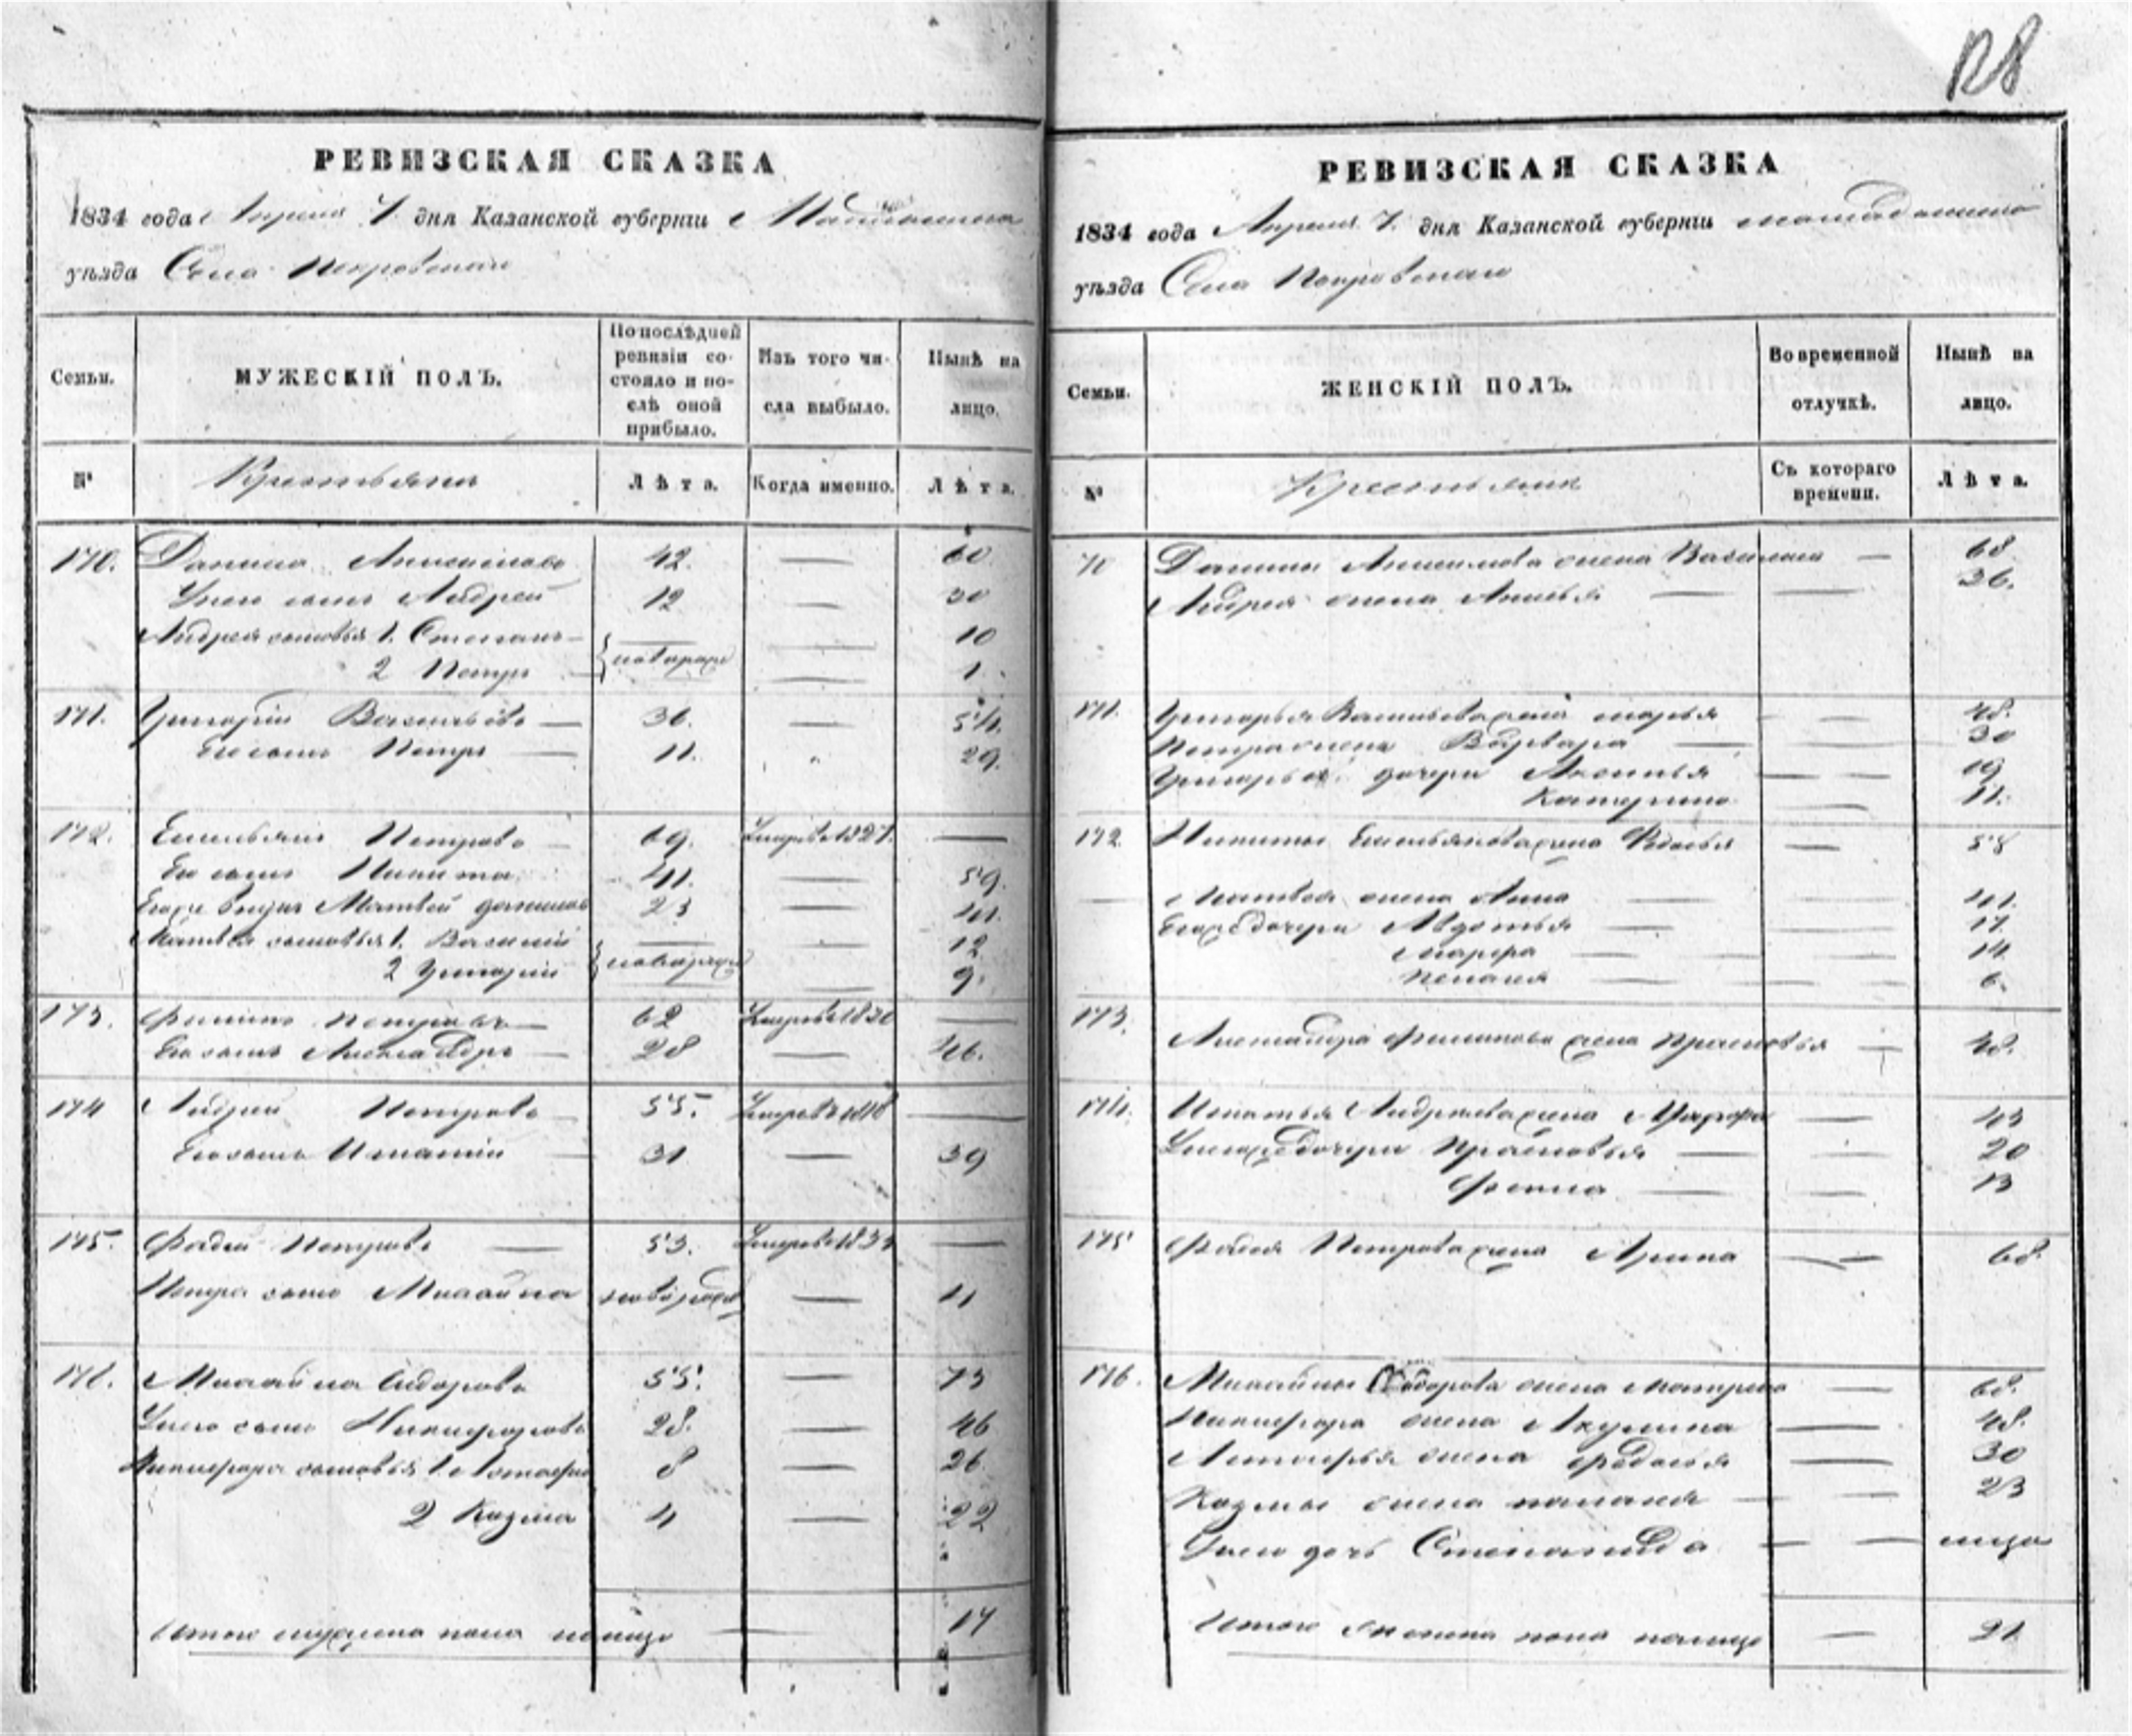 128
РЕВИЗСКАЯ СКАЗКА
1834 года Апреля 7. дня Казанской губернıи
уѣзда Села Покровскаго
Семьи.
МУЖЕСКІЙ ПОЛЪ.
По послѣдней ревизіи состояло и послѣ оной прибыло.
Изъ того числа выбыло.
Нынѣ на лицо.
№
Крестьяне
Лѣта.
Когда именно.
Лѣта.
170. Данило Анисимовъ 42. — 60
У него сынъ Андрей 12 — 30
Андрея сыновья 1. Степанъ — 10
2 Петръ новорож — 1.
171. Григорій Васильевъ — 36. — 54.
Его сынъ Петръ — 11. 29.
172. Емельянъ Петровъ — 69. Умеръ въ 1827. —
Его сынъ Никита 41. — 59.
Матвей 23 — 41.
Матвея сыновья 1. Василий — 12
2 Григорий новорож — 9.
173. Филипъ Петровъ — 62 Умеръ въ 1830 —
Его сынъ Александръ — 28 — 46.
174 Андрей Петровъ — 55. Умеръ въ 1818 —
Его сынъ Игнатий — 31 — 39
175. Фадей Петровъ — 53. Умеръ въ 1834 —
Петра сынъ Михайла новорож — 11
176. Михайла Сидоровъ 55. — 73
У него сынъ Никифоровъ 28. — 46
Никифора сыновья 1. 8 — 26
2 Козма 4 — 22
Итого мужеска пола на лицо — 17
РЕВИЗСКАЯ СКАЗКА
1834 года Апреля 7. дня Казанской губернıи
уѣзда Села Покровскаго
Семьи.
ЖЕНСКІЙ ПОЛЪ.
Во временной отлучкѣ.
Нынѣ на лицо.
№
Крестьянки
Съ котораго времени.
Лѣта.
70 Данилы Анисимова жена Василиса — 68.
Андрея жена — — 36.
171. Григорья Васильева жена Марья — — 48.
Петра жена Варвара — — 30
Григорья дочери Аксинья — — 19
Катерина — 11.
172. Никиты Емельянова жена Федосья — 58
Матвея жена Анна — — 41.
Его же дочери Авдотья — — 17
Марфа — — 14
Пелагия — — 6.
173. Александра Филипова жена Прасковья — 48.
174. Игнатья Андреева жена Марфа — 43
У него же дочери Прасковья — — 20
Фекла — — 13
175 Фадея Петрова жена Арина — — 68.
176. Михайлы Сидорова жена Матрена — 68.
Никифора жена Акулина — — 48.
жена Федосья — — 30
Козмы жена Пелагея — — 23
У него дочь Степанида — —
Итого женска пола на лице — 21